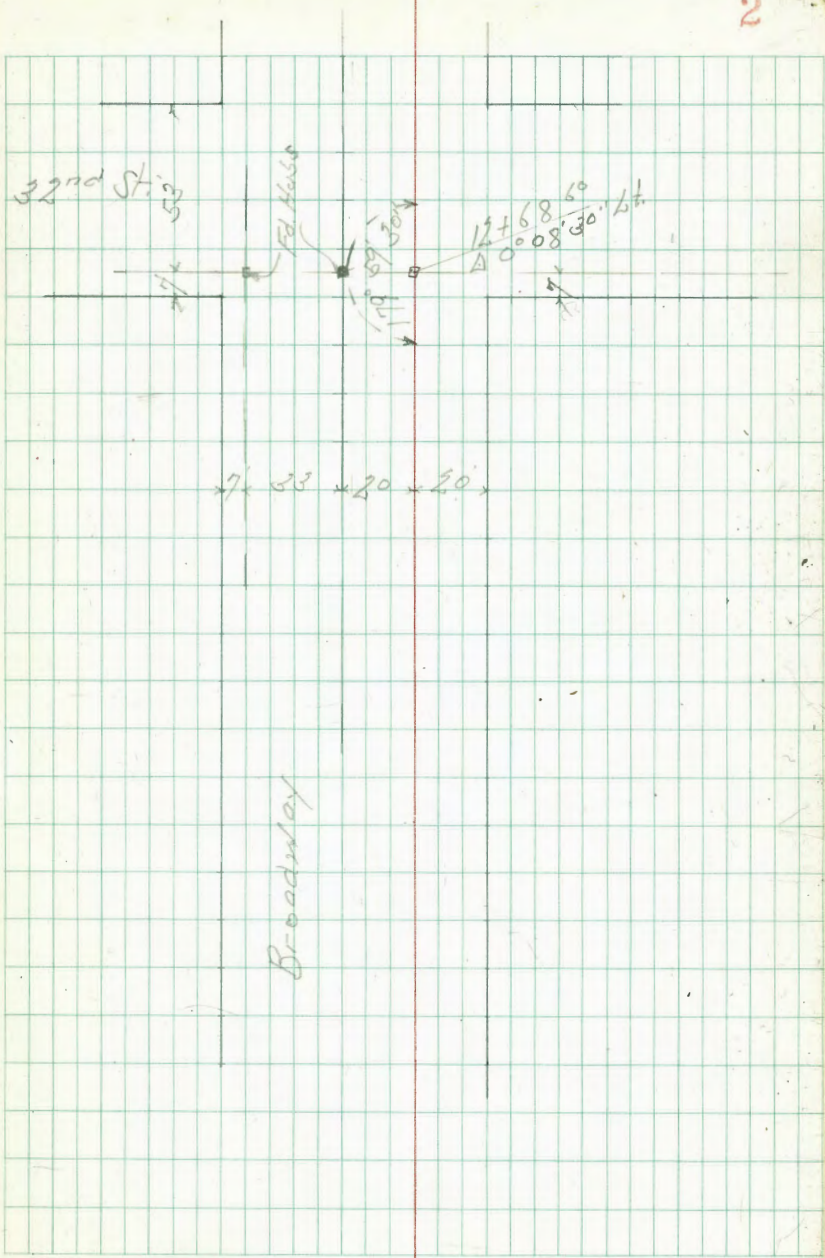 2
32nd St.
53
7
Fd. Hubs
179° 59' 30"
12+68 60
Δ 0° 08' 30" Lt.
7
7 33 20 20
Broadway